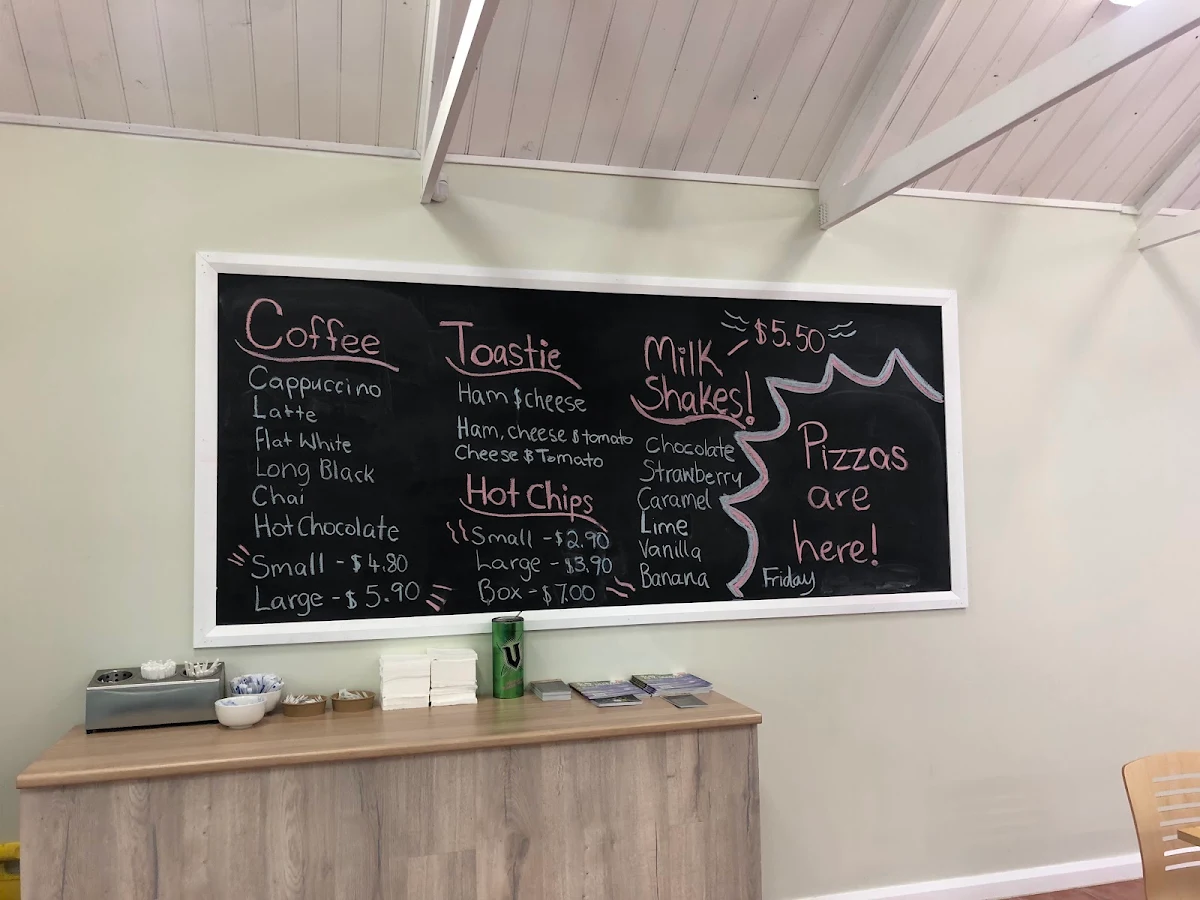 Coffee
Cappuccino
Latte
Flat White
Long Black
Chai
Hot Chocolate
Small - $4.80
Large - $5.90
Toastie
Ham $ cheese
Ham, cheese $ tomato
Cheese $ Tomato
Hot Chips
Small - $2.90
Large - $3.90
Box - $7.00
Milk - $5.50
Shakes!
Chocolate
Strawberry
Caramel
Lime
Vanilla
Banana
Pizzas
are
here!
Friday
V